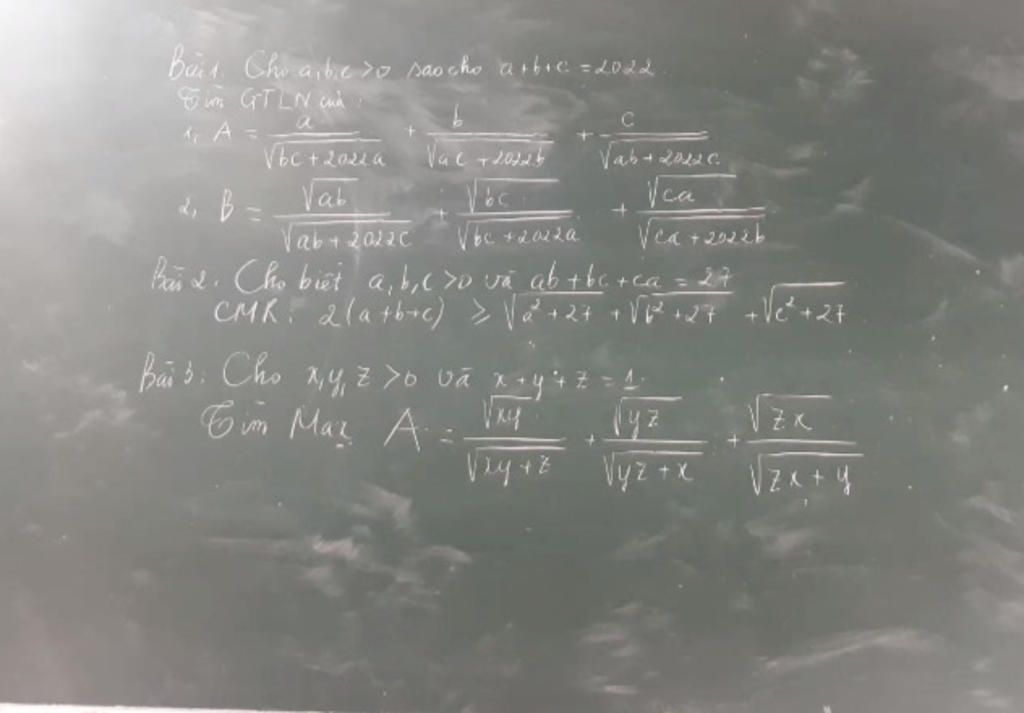 Bài 1. Cho a,b,c >0 sao cho a+b+c = 2022.
Tìm GTLN của:
1, A = a/√(bc+2022a) + b/√(ac+2022b) + c/√(ab+2022c)
2, B = √ab/√(ab+2022c) + √bc/√(bc+2022a) + √ca/√(ca+2022b)
Bài 2. Cho biết a,b,c >0 và ab+bc+ca = 27
CMR: 2(a+b+c) ≥ √(a²+27) + √(b²+27) + √(c²+27)
Bài 3: Cho x,y,z >0 và x+y+z =1.
Tìm Max A = √xy/√(xy+z) + √yz/√(yz+x) + √zx/√(zx+y)